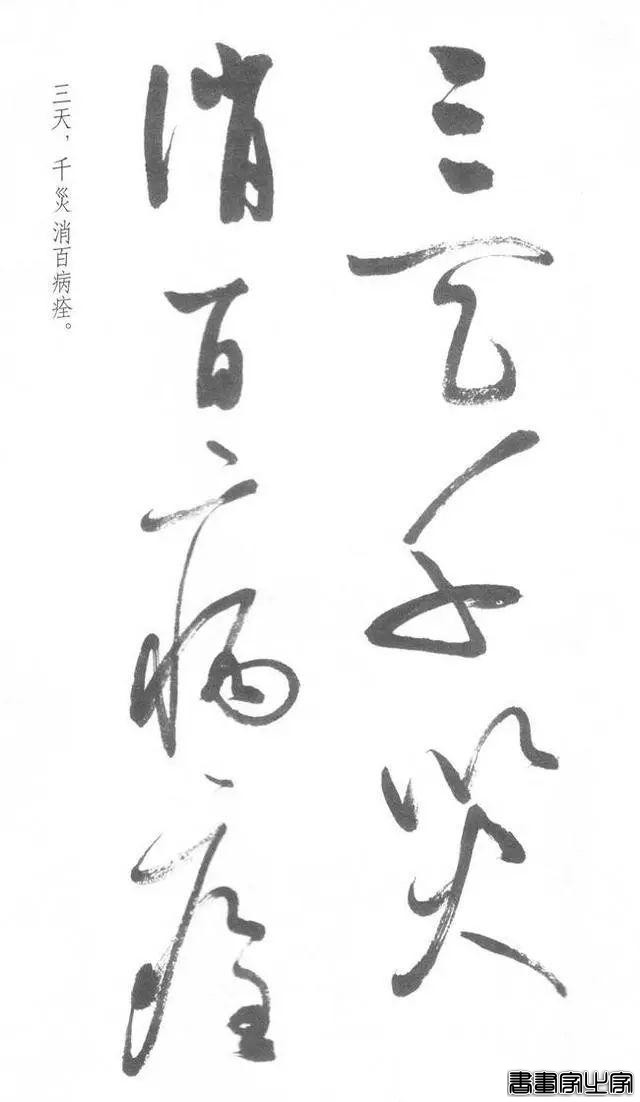 三天千災
消百病痊
三天，千災消百病痊。
書畫家字字